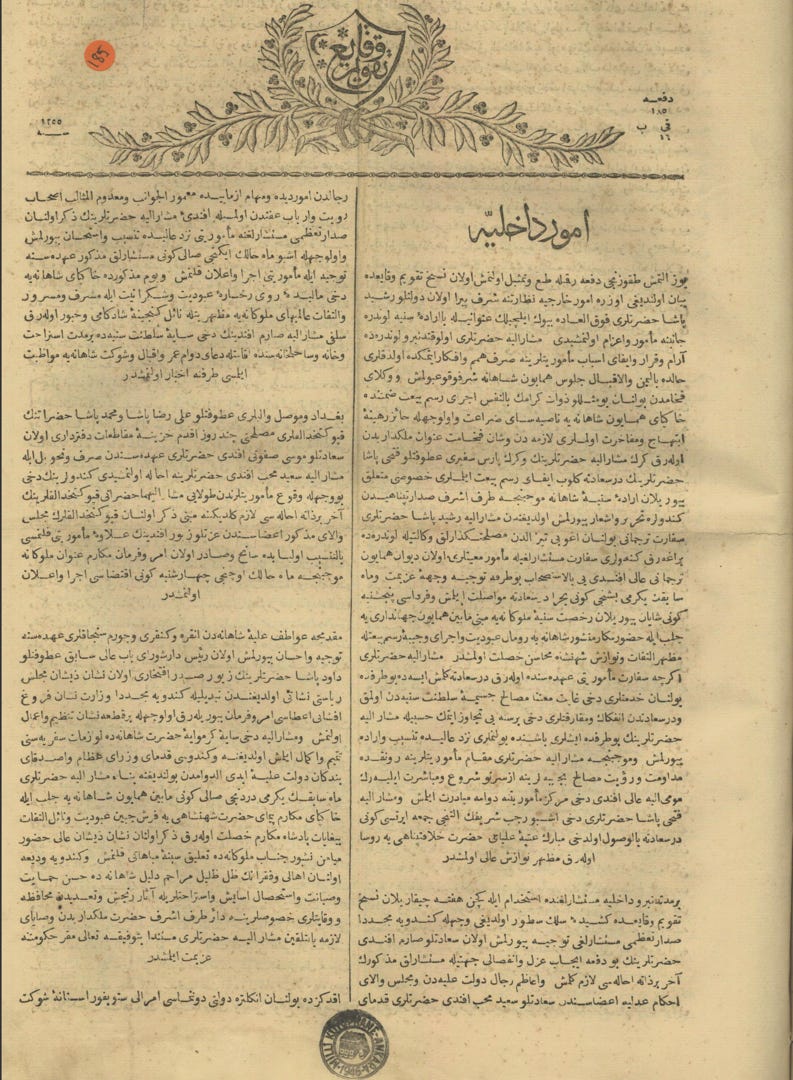 185
تقويم وقايع
دفعه
١٨٥
فى ب
١٦
١٢٥٥
سنه
امور داخليه
يوز التمش طقوزنجى دفعه رقمله طبع وتمثيل اولنمش اولان نسخ تقويم وقايعده
بيان اولنديغى اوزره امور خارجيه نظارتنه شرف پيرا اولان دولتلو رشيد
پاشا حضرتلرى فوق العاده بيوك ايلچيلك عنوانيله بااراده سنيه لوندره
جانبنه مأمور واعزام اولنمشيدى مشاراليه حضرتلرى اولوقتدنبرو لوندره ده
آرام وقرار وايفاى اسباب مأموريتلرينه صرف همم وافكار ايتمكده اولدقلرى
حالده باليمن والاقبال جلوس همايون شاهانه شرفوقوعبولمش ووكلاى
فخامدن بولنان بومثللو ذوات كرامك بالنفس اجراى رسم بيعت ضمننده
خاكپاى همايون شاهانه يه ناصيه ساى ضراعت واولوجهله حائز رهينۀ
ابتهاج ومفاخرت اولملرى لازمه دن وشان فخامت عنوان ملكداريدن
اوله رق كرك مشاراليه حضرتلرينك وكرك پارس سفيرى عطوفتلو فتحى پاشا
حضرتلرينك درسعادته كلوب ايفاى رسم بيعت ايلملرى خصوصى متعلق
بيوريلان اراده سنيۀ شاهانه موجبنجه طرف اشرف صدارتپناهيدن
كندولره تحرير واشعار بيورلمش اولديغندن مشاراليه رشيد پاشا حضرتلرى
سفارت ترجمانى بولنان اغوبى تيز الدن مصلحتكذارلق وكالتيله لوندره ده
براغه رق كندولرى سفارت مستشارلغيله مأمور معيتلرى اولان ديوان همايون
ترجمانى عالى افندى يى بالاستصحاب بوطرفه توجيه وجهۀ عزيمت وماه
سابقك يكرمى بشنجى كونى بحرا درسعادته مواصلت ايلمش وفرداسى پنجشنبه
كونى شايان بيوريلان رخصت سنيۀ ملوكانه يه مبنى مابين همايون جهاندارى يه
جلب ايله حضور مكارمنشور شاهانه يه رومال عبوديت واجراى وجيبۀ رسم بيعتله
مظهر التفات ونوازش شهنشاه محاسن خصلت اولمشدر مشاراليه حضرتلرى
اكرچه سفارت مأموريتى عهده سنده اوله رق درسعادته كلمش ايسه ده بوطرفده
بولنان خدمتلرى دخى غايت معتنا مصالح جسيمۀ سلطنت سنيه دن اولمق
ودرسعادتدن انفكاك ومفارقتلرى دخى برسنه يى تجاوز ايتمك حسبيله مشاراليه
حضرتلرينك بوطرفده ايشلرى باشنده بولنملرى نزد عاليده تنسيب واراده
بيورلمش وموجبنجه مشاراليه حضرتلرى مقام مأموريتلرينه رونقده
مداومت ورؤيت مصالح بجيبه لرينه ازسرنو شروع ومباشرت ايليه رك
مومى اليه عالى افندى دخى مركز مأموريتنه دوامه مبادرت ايلمش ومشاراليه
فتحى پاشا حضرتلرى دخى اشبو رجب شريفك التنجى جمعه ايرتسى كونى
درسعادته بالوصول اولدخى مبارك عتبۀ علياى حضرت خلافتپناهى يه روسا
اوله رق مظهر نوازش عالى اولمشدر
برمدتدنبرو داخليه مستشارلغنده استخدام ايله كچن هفته چيقاريلان نسخ
تقويم وقايعده كشيدۀ سلك سطور اولديغى وجهله كندويه مجددا
صدارتعظمى مستشارلغى توجيه بيورلمش اولان سعادتلو صارم افندى
حضرتلرينك بودفعه ايجاب عزل وانفصالى جهتيله مستشارلق مذكورك
آخر برذاته احاله سى لازم كلمش واعاظم رجال دولت عليه دن ومجلس والاى
احكام عدليه اعضاسندن سعادتلو سعيد محب افندى حضرتلرى قدماى
رجالدن امورديده ومهام ازماييده معمور الجوانب ومعدوم المثالب اصحاب
رويت وارباب عفتدن اولمسيله افندئ مشاراليه حضرتلرينك ذكر اولنان
صدارتعظمى مستشارلغنه مأموريتى نزد عاليده تنسيب واستحسان بيورلمش
واولوجهله اشبو ماه حالك ايكنجى صالى كونى مستشارلق مذكور عهده سنه
توجيه ايله مأموريتى اجرا واعلان قلنمش ويوم مذكورده خاكپاى شاهانه يه
دخى ماليدۀ روى رخسارۀ عبوديت وشكرانيت ايله مشرف ومسرور
والتفات عاليهاى ملوكانه يه مظهريتله نائل كنجينۀ شادكامى وحبور اوله رق
سلفى مشاراليه صارم افندينك دخى سايۀ سلطنت سنيه ده برمدت استراحت
وخانه وساحلخانه سنده اقامتله دعاى دوام عمر واقبال وشوكت شاهانه يه مواظبت
ايلمسى طرفنه اخبار اولنمشدر
بغداد وموصل واليلرى عطوفتلو على رضا پاشا ومحمد پاشا حضراتنك
قپوكتخدالقلرى مصلحتى چند روز اقدم خزينۀ مقاطعات دفتردارى اولان
سعادتلو موسى صفوتى افندى حضرتلرى عهده سندن صرف وتحويل ايله
مشاراليه سعيد محب افندى حضرتلرينه احاله اولنمشيدى كندولرينك دخى
بووجهله وقوع مأموريتلرندن طولايى مشاراليهما حضراتى قپوكتخدالقلرينك
آخر برذاته احاله سى لازم كلديكنه مبنى ذكر اولنان قپوكتخدالقلرك مجلس
والاى مذكور اعضاسندن عزتلو زيور افندينك علاوۀ مأموريتى قلنمسى
بالتنسيب اولبابده سانح وصادر اولان امر وفرمان مكارم عنوان ملوكانه
موجبنجه ماه حالك اوچنجى چهارشنبه كونى اقتضاسى اجرا واعلان
اولنمشدر
مقدمجه عواطف عليۀ شاهانه دن انقره وكنغرى وچورم سنجاقلرى عهده سنه
توجيه واحسان بيورلمش اولان رئيس دارشوراى باب عالى سابق عطوفتلو
داود پاشا حضرتلرينك زيور صدر افتخارى اولان نشان ذيشان مجلس
رياستى نشانى اولديغندن تبديليله كندويه مجددا وزارت نشان فروغ
افشانى اعطاسى امر وفرمان بيوريله رق اولوجهله برقطعه نشان تنظيم واعمال
اولنمش ومشاراليه دخى سايۀ كرموايۀ حضرت شاهانه ده لوازمات سفريه سنى
تتميم واكمال ايلمش اولديغنه وكندوسى قدماى وزراى عظام واصدقاى
بندكان دولت عليۀ ابدى الدوامدن بولنديغنه بناء مشاراليه حضرتلرى
ماه سابقك يكرمى دردنجى صالى كونى مابين همايون شاهانه يه جلب ايله
خاكپاى مكارم پيماى حضرت شهنشاهى يه فرش جبين عبوديت ونائل التفات
بيغايات پادشاه مكارم خصلت اوله رق ذكر اولنان نشان ذيشان عالى حضور
ميامن نشور جناب ملوكانه ده تعليق سينۀ مباهاتى قلنمش وكندويه وديعه
اولنان اهالى وفقرانك ظل ظليل مراحم دليل شاهانه ده حسن حمايت
وصيانت واستحصال اسايش واستراحتلريله آثار رنجش وتعديدن محافظه
ووقايتلرى خصوصلرينه دائر طرف اشرف حضرت ملكداريدن وصاياى
لازمه بالتلقين مشاراليه حضرتلرى مستندا بتوفيقه تعالى مقر حكومتنه
عزيمت ايلمشدر
اقدكزده بولنان انكلتره دولتى دوننماسى اميرالى ستوپفور استانۀ شوكت